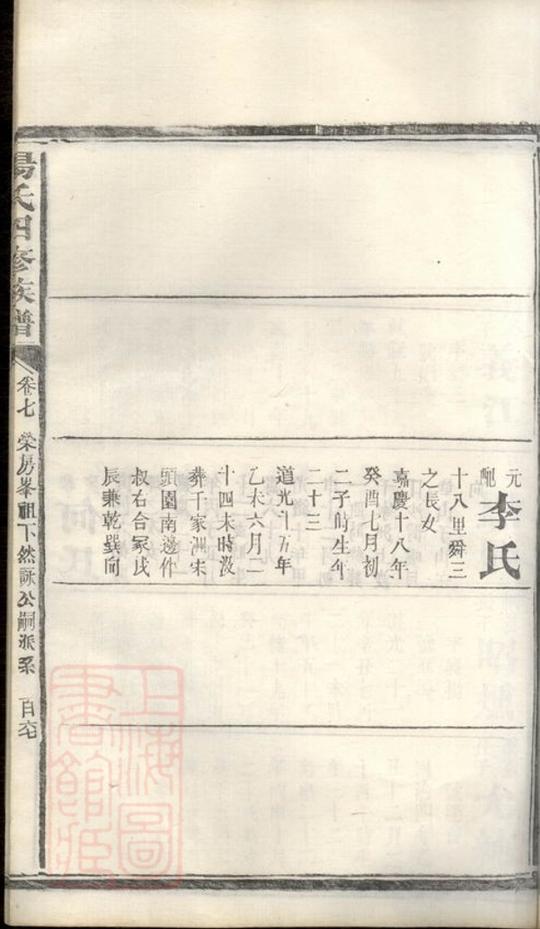 元配李氏
十八里舜三
之長女
嘉慶十八年
癸酉七月初
二子時生年
二十三
道光十五年
乙未六月二
十四未時沒
葬于家洲宋
頭園南邊仵
叔右合冢戌
辰兼乾巽向
湯氏四修族譜
卷七 榮房峯祖下然詠公嗣派系
上海圖書館藏